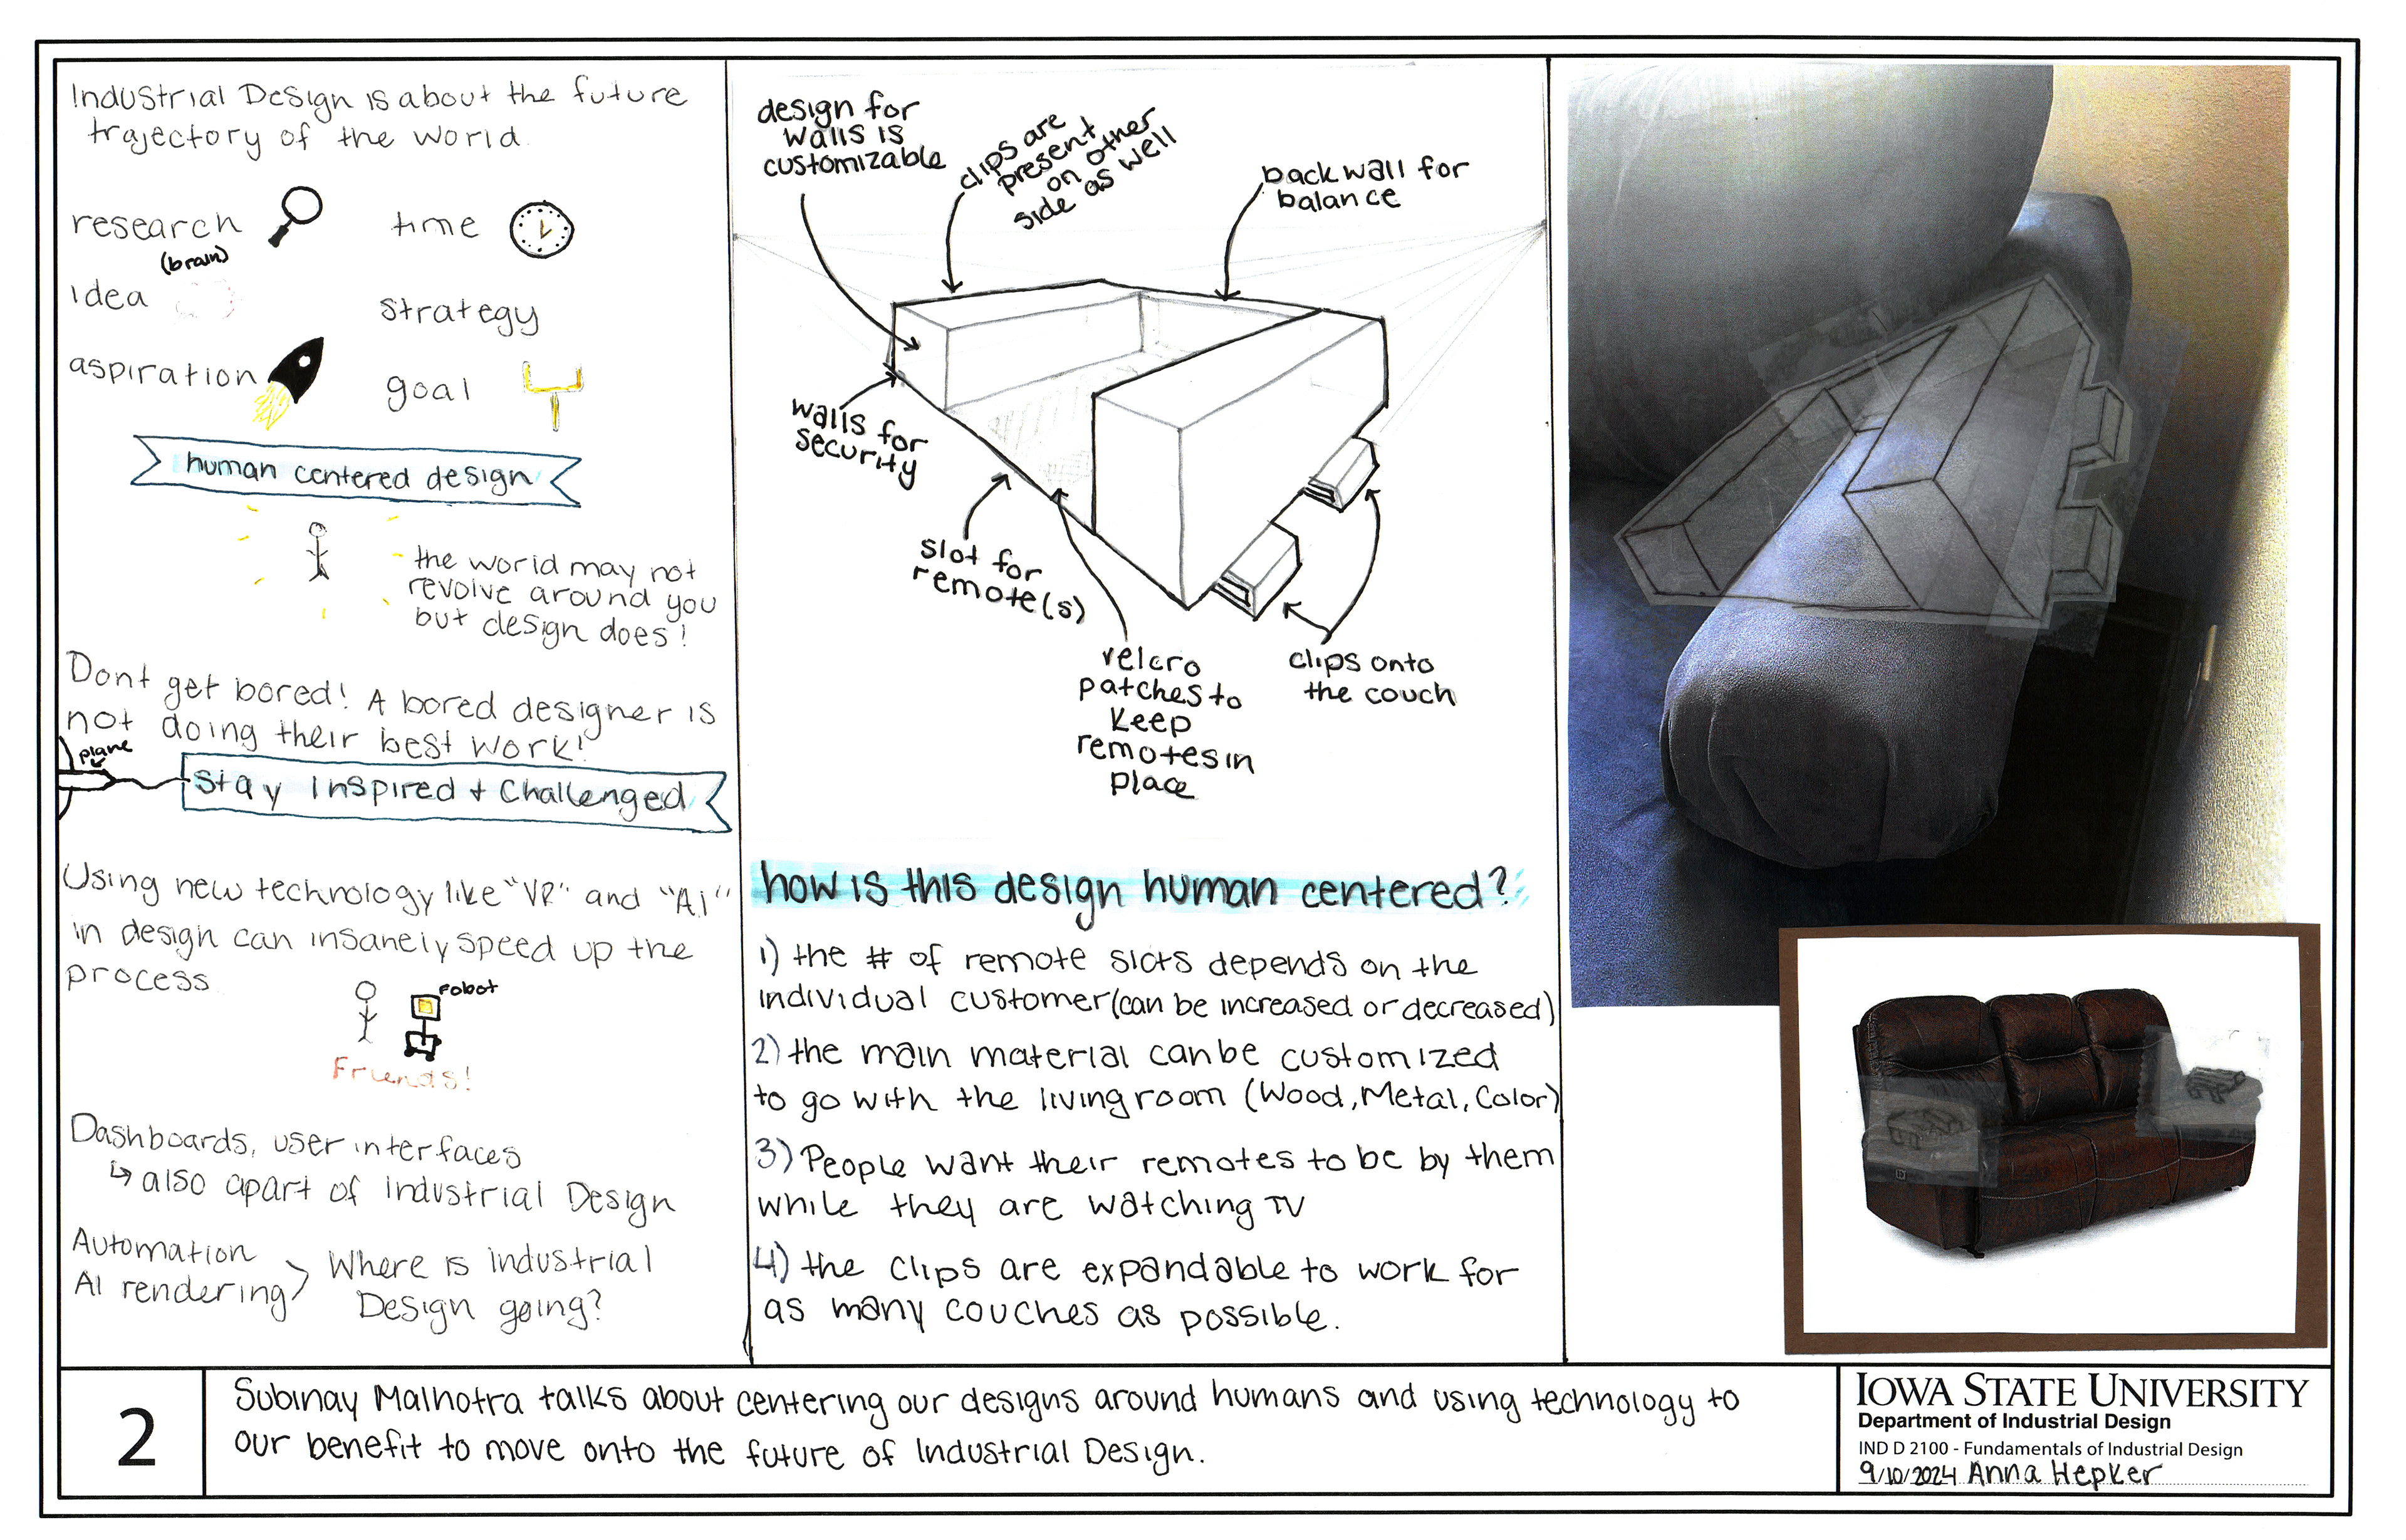 Industrial Design is about the future
trajectory of the world.
research
(brain)
time
idea
strategy
aspiration
goal
human centered design
the world may not
revolve around you
but design does!
Dont get bored! A bored designer is
not doing their best work!
plane
Stay Inspired + Challenged
Using new technology like "VR" and "Ai"
in design can insanely speed up the
process
robot
Friends!
Dashboards, user interfaces
↳ also apart of Industrial Design
Automation
AI rendering
Where is industrial
Design going?
design for
walls is
customizable
clips are
present
on other
side as well
back wall for
balance
walls for
security
slot for
remote(s)
velcro
patches to
keep
remotes in
place
clips onto
the couch
how is this design human centered?
1) the # of remote slots depends on the
individual customer (can be increased or decreased)
2) the main material can be customized
to go with the living room (Wood, Metal, Color)
3) People want their remotes to be by them
while they are watching TV
4) the clips are expandable to work for
as many couches as possible.
2
Subinay Malhotra talks about centering our designs around humans and using technology to
our benefit to move onto the future of Industrial Design.
IOWA STATE UNIVERSITY
Department of Industrial Design
IND D 2100 - Fundamentals of Industrial Design
9/10/2024 Anna Hepker